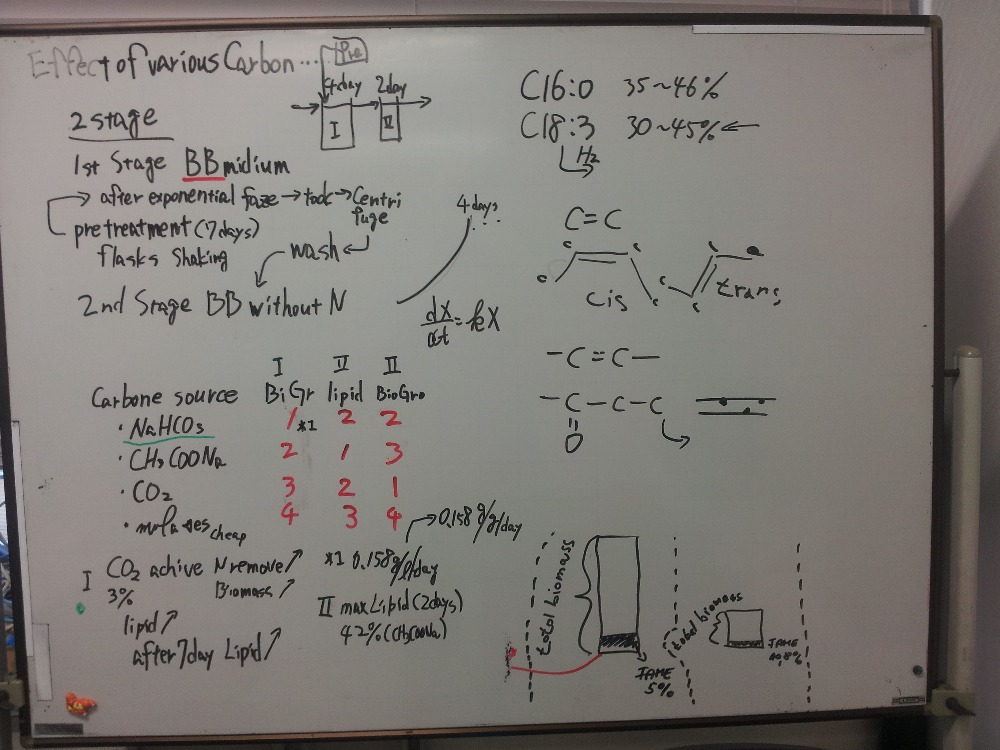 Effect of various Carbon ...
Pre
4day 2day
I II
2 stage
1st Stage BB midium
→ after exponential faze → took → Centri
fuge
pretreatment (7days)
flasks Shaking
wash
2nd Stage BB without N
4 days
...
dX/dt = kX
I II II
Carbone source BiGr lipid BioGro
· NaHCO3 1 *1 2 2
· CH3COONa 2 1 3
· CO2 3 2 1
· cheap 4 3 4
→ 0.158 g/g/day
I CO2 achive N remove ↗
3% Biomass ↗
lipid ↗
after 7day Lipid ↗
*1 0.158 g/l/day
II max Lipid (2days)
42% (CH3COONa)
C16:0 35~46%
C18:3 30~45% ←
H2
C=C
c c c
c c c c
cis trans
-C=C-
-C-C-C
=
O
total biomass
FAME
5%
total biomass
FAME